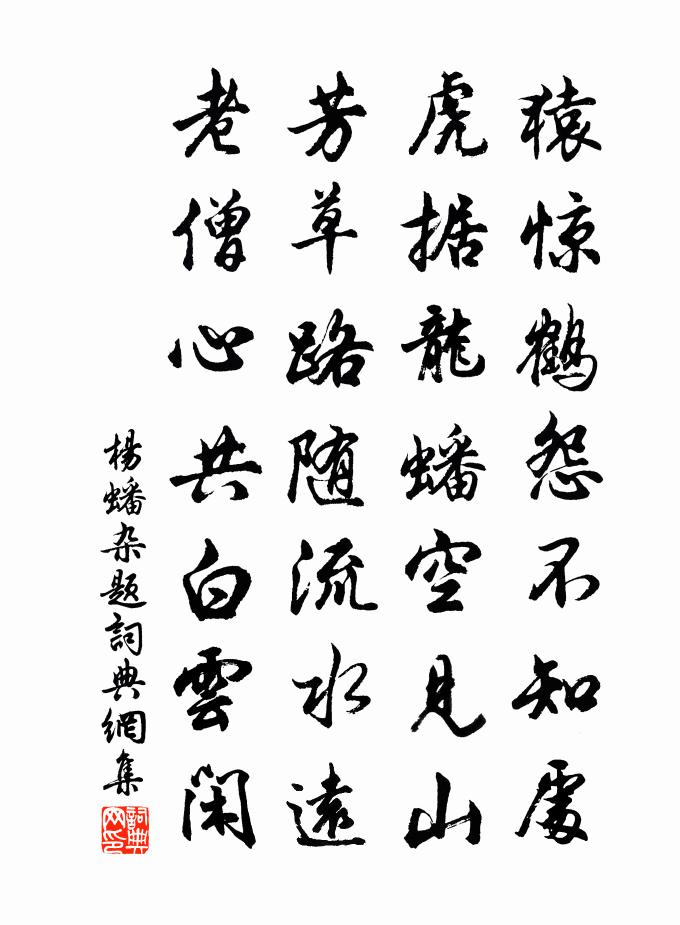 猿惊鹤怨不知處
虎据龍蟠空见山
芳草路随流水遠
老僧心共白雲閑
楊蟠杂题詞典網集
詞典网印